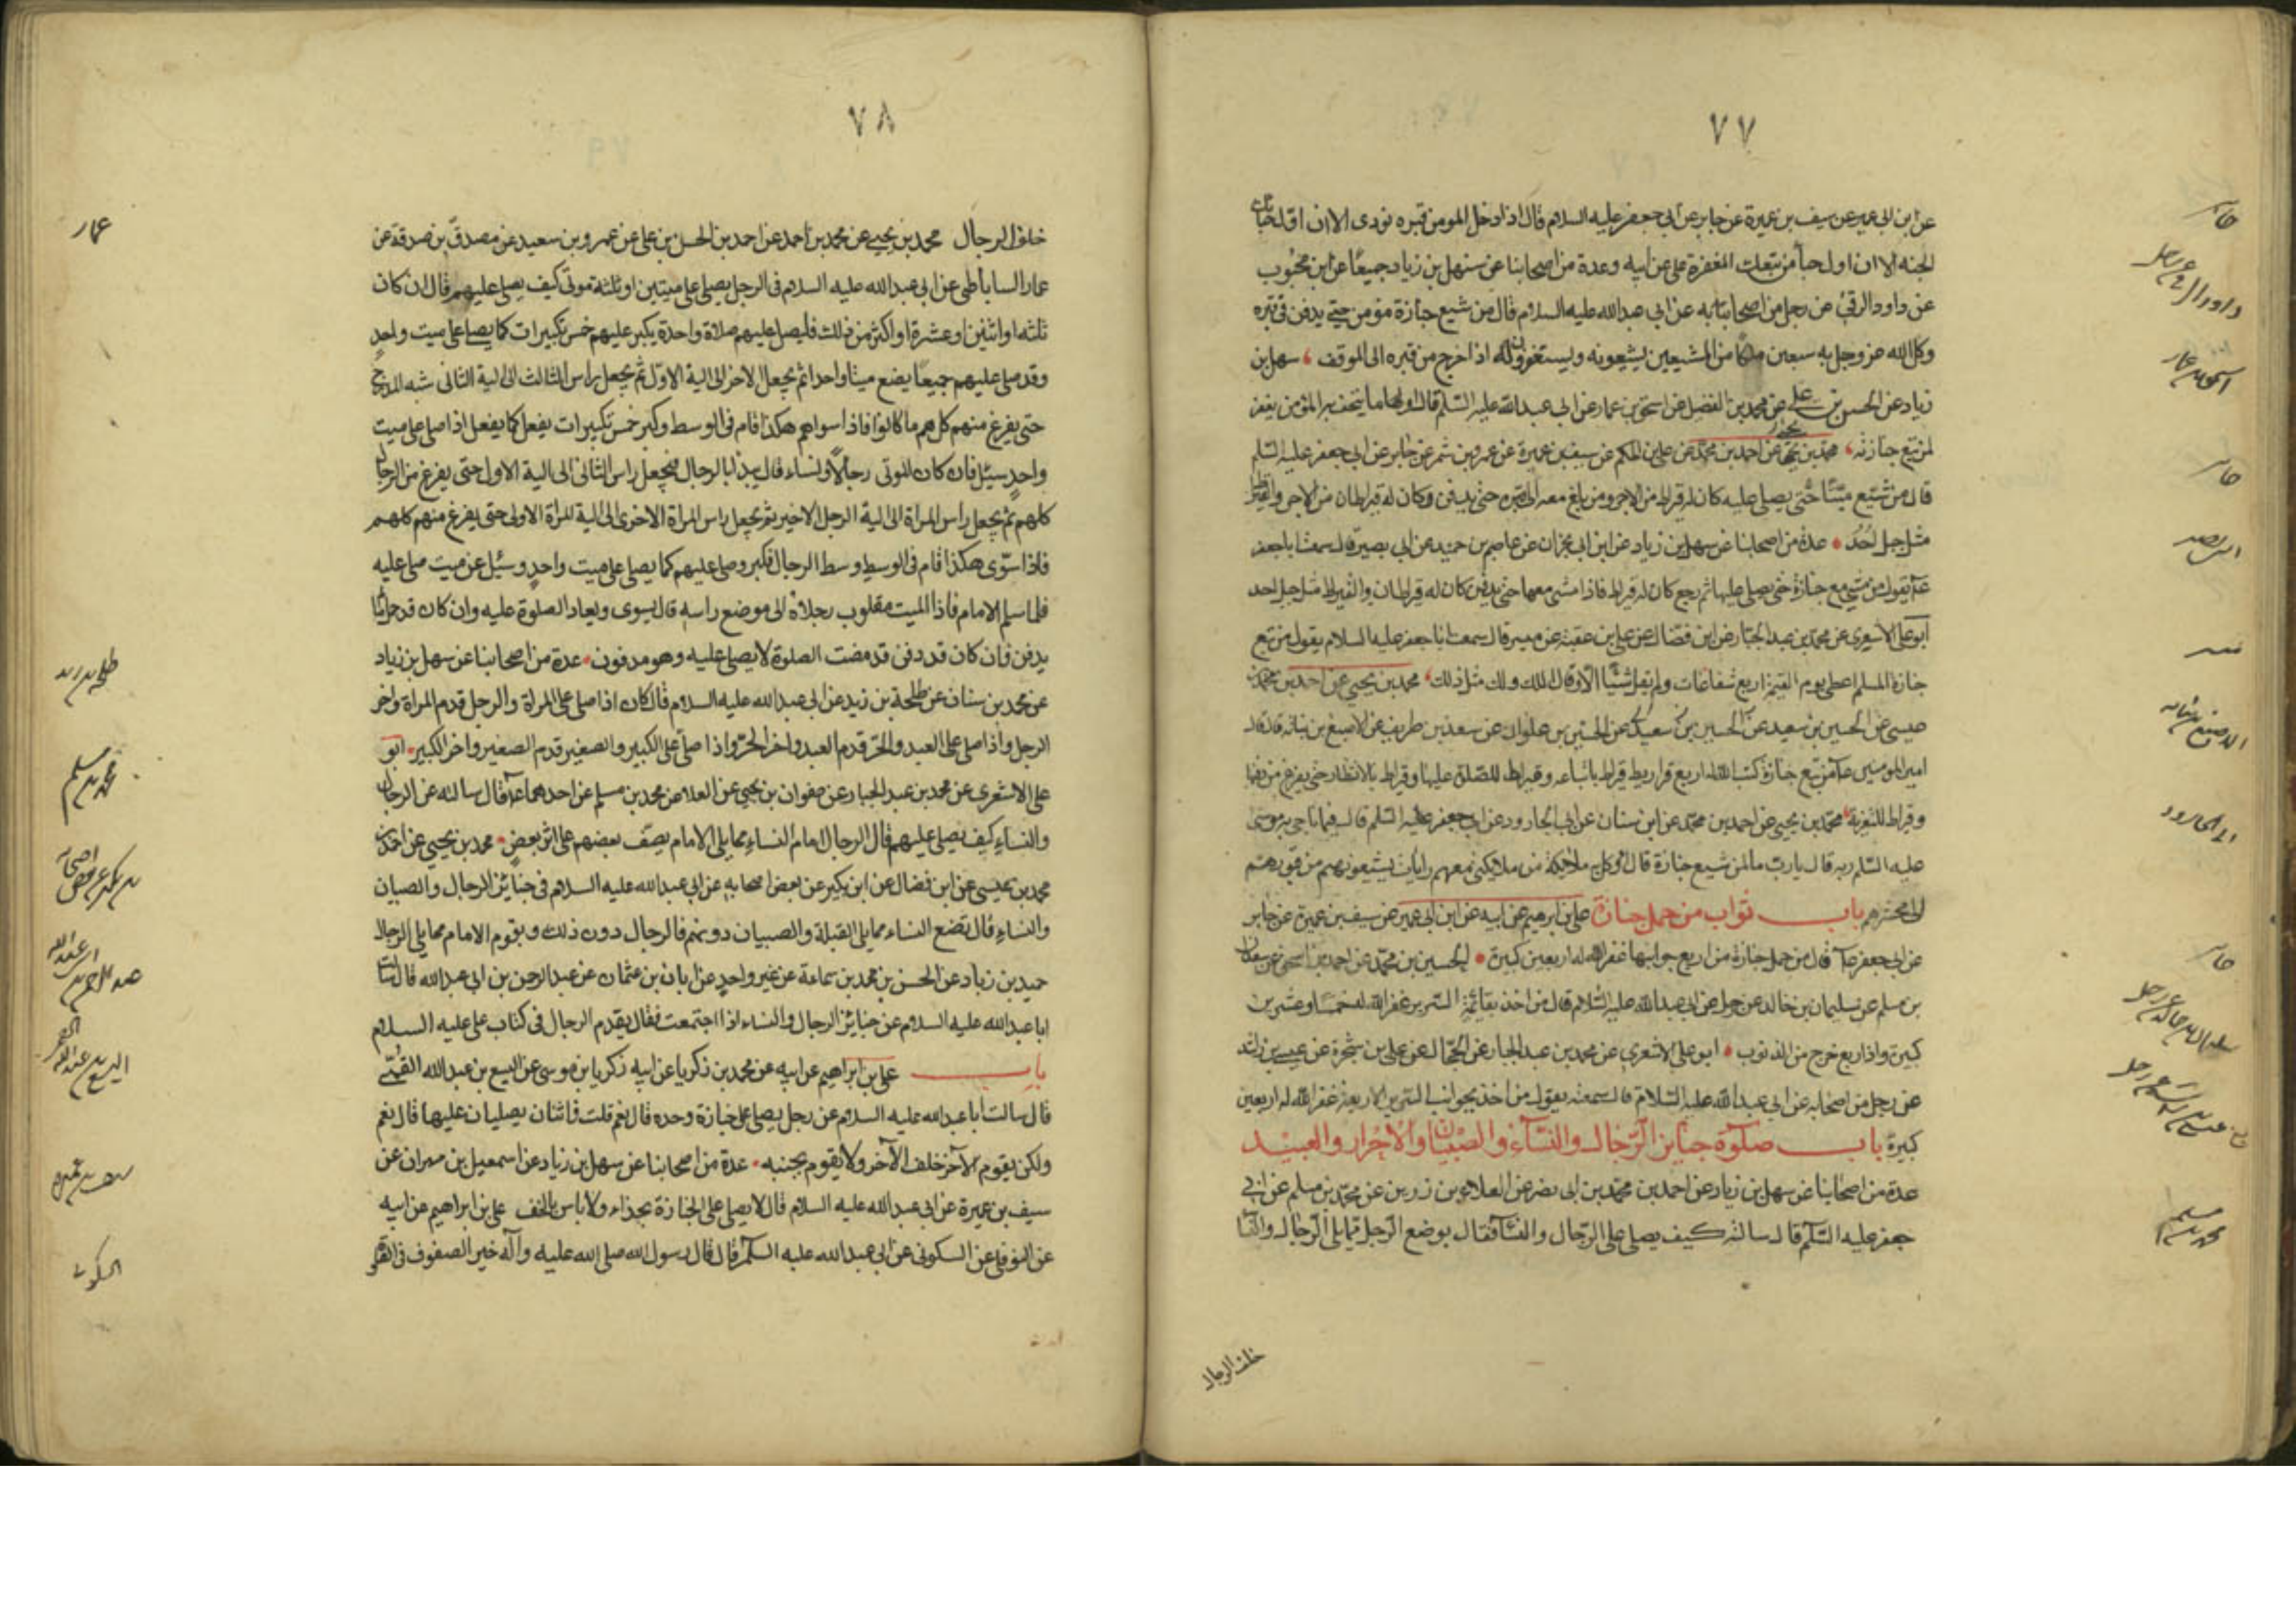 ٧٧
عن ابن ابى عمير عن سيف بن عميرة عن جابر عن ابى جعفر عليه السلام قال اذا دخل المومن قبره نودى الا ان اول حبائك
الجنه الا ان اول حبا من تبعك المغفرة على عن ابيه وعدة من اصحابنا عن سهل بن زياد جميعا عن ابن محبوب
عن داود الرقى عن رجل من اصحابه عن ابى عبد الله عليه السلام قال من شيع جنازة مؤمن حتى يدفن فى قبره
وكل الله عز وجل به سبعين ملكا من المشيعين يشيعونه ويستغفرون له اذا خرج من قبره الى الموقف سهل بن
زياد عن الحسن بن على عن محمد بن الفضيل عن اسحق بن عمار عن ابى عبد الله عليه السلم قال اول ما يتحف به المؤمن يغفر
لمن تبع جنازته محمد بن يحيى عن احمد بن محمد عن على بن الحكم عن سيف بن عميرة عن عمرو بن شمر عن جابر عن ابى جعفر عليه السلم
قال من شيع ميتا حتى يصلى عليه كان له قيراط من الاجر ومن بلغ معه الى قبره حتى يدفن وكان له قيراطان من الاجر والقيراط
مثل جبل احد عدة من اصحابنا عن سهل بن زياد عن ابن ابى نجران عن عاصم بن حميد عن ابى بصير قال سمعت ابا جعفر
عم يقول من مشى مع جنازة حتى يصلى عليها ثم رجع كان له قيراط فاذا مشى معها حتى يدفن كان له قيراطان والقيراط مثل جبل احد
ابو على الاشعرى عن محمد بن عبد الجبار عن ابن فضال عن على بن عقبة عن ميسر قال سمعت ابا جعفر عليه السلام يقول من تبع
جنازة المسلم اعطى يوم القيمة اربع شفاعات ولم يقل شيئا الا وقال الملك ولك مثل ذلك محمد بن يحيى عن احمد بن محمد بن
عيسى عن الحسين بن سعيد عن الحسين بن علوان عن سعد بن طريف عن الاصبغ بن نباته قال قال
امير المومنين عم من تبع جنازة كتب الله له اربع قراريط قيراط باتباعه وقيراط للصلوة عليها وقيراط بالانتظار حتى يفرغ من دفنها
وقيراط للتعزية محمد بن يحيى عن احمد بن محمد عن ابن سنان عن ابى الجارود عن ابى جعفر عليه السلم قال فيما ناجى به موسى
عليه السلم ربه قال يا رب ما لمن شيع جنازة قال اوكل به ملائكة من ملائكتى معهم رايات يشيعونهم من قبورهم
الى محشرهم باب ثواب من حمل جنازة على بن ابرهيم عن ابيه عن ابن ابى عمير عن سيف بن عميرة عن جابر
عن ابى جعفر عم قال من حمل جنازة من اربع جوانبها غفر الله له اربعين كبيرة الحسين بن محمد عن احمد بن اسحق عن سعدان
بن مسلم عن سليمان بن خالد عن رجل عن ابى عبد الله عليه السلام قال من اخذ بقائمة السرير غفر الله له خمسا وعشرين
كبيرة واذا ربع خرج من الذنوب ابو على الاشعرى عن محمد بن عبد الجبار عن الحجال عن على بن شجرة عن عيسى بن راشد
عن رجل من اصحابه عن ابى عبد الله عليه السلام قال سمعته يقول من اخذ بجوانب السرير الاربعة غفر الله له اربعين
كبيرة باب صلوة جنايز الرجال والنسآء والصبيان والاحرار والعبيد
عدة من اصحابنا عن سهل بن زياد عن احمد بن محمد بن ابى نصر عن العلاء بن رزين عن محمد بن مسلم عن ابى
جعفر عليه السلم قال سالته كيف يصلى على الرجال والنسآ فقال يوضع الرجل مما يلى الرجال والنسا
خلف الرجال
جابر
داود الرقى عن رجل
اسحق بن عمار
جابر
ابى بصير
ميسر
الاصبغ بن نباته
ابى الجارود
جابر
سليمان بن خالد عن رجل
عيسى بن راشد عن رجل
محمد بن مسلم
٧٨
خلف الرجال محمد بن يحيى عن محمد بن احمد عن احمد بن الحسن بن على عن عمرو بن سعيد عن مصدق بن صدقة عن
عمار الساباطى عن ابى عبد الله عليه السلام فى الرجل يصلى على ميتين او ثلثة موتى كيف يصلى عليهم قال ان كان
ثلثه او اثنين او عشرة او اكثر من ذلك فليصل عليهم صلاة واحدة يكبر عليهم خمس تكبيرات كما يصلى على ميت واحد
وقد صلى عليهم جميعا يضع ميتا واحدا ثم يجعل الاخر الى الية الاول ثم يجعل راس الثالث الى الية الثانى شبه المدرج
حتى يفرغ منهم كلهم ما كانوا فاذا سواهم هكذا قام فى الوسط وكبر خمس تكبيرات يفعل كما يفعل اذا صلى على ميت
واحد سئل فان كان الموتى رجالا ونساء قال يبدا بالرجال فيجعل راس الثانى الى الية الاول حتى يفرغ من الرجال
كلهم ثم يجعل راس المراة الى الية الرجل الاخير ثم يجعل راس المراة الاخرى الى الية المراة الاولى حتى يفرغ منهم كلهم
فاذا سوى هكذا قام فى الوسط وسط الرجال فكبر وصلى عليهم كما يصلى على ميت واحد وسئل عن ميت صلى عليه
فلما سلم الامام فاذا الميت مقلوب رجلاه الى موضع راسه قال يسوى ويعاد الصلوة عليه وان كان قد حمل ما لم
يدفن فان كان قد دفن قد مضت الصلوة لا يصلى عليه وهو مدفون عدة من اصحابنا عن سهل بن زياد
عن محمد بن سنان عن طلحة بن زيد عن ابى عبد الله عليه السلام قال كان اذا صلى على المراة والرجل قدم المراة واخر
الرجل واذا صلى على العبد والحر قدم العبد واخر الحر واذا صلى على الكبير والصغير قدم الصغير واخر الكبير ابو
على الاشعرى عن محمد بن عبد الجبار عن صفوان بن يحيى عن العلا عن محمد بن مسلم عن احدهما عم قال سالته عن الرجال
والنساء كيف يصلى عليهم قال الرجال امام النساء مما يلى الامام يصف بعضهم على اثر بعض محمد بن يحيى عن احمد بن
محمد بن عيسى عن ابن فضال عن ابن بكير عن بعض اصحابه عن ابى عبد الله عليه السلام فى جنايز الرجال والصبيان
والنساء قال تضع النساء مما يلى القبلة والصبيان دونهم والرجال دون ذلك ويقوم الامام مما يلى الرجال
حميد بن زياد عن الحسن بن محمد بن سماعة عن غير واحد عن ابان بن عثمان عن عبد الرحمن بن ابى عبد الله قال سالت
ابا عبد الله عليه السلام عن جنايز الرجال والنساء اذا اجتمعت فقال يقدم الرجال فى كتاب على عليه السلام
باب على بن ابراهيم عن ابيه عن محمد بن زكريا عن ابيه زكريا بن موسى عن اليسع بن عبد الله القمى
قال سالت ابا عبد الله عليه السلام عن رجل يصلى على جنازة وحده قال نعم قلت فاثنان يصليان عليها قال نعم
ولكن يقوم الآخر خلف الآخر ولا يقوم بجنبه عدة من اصحابنا عن سهل بن زياد عن اسمعيل بن مهران عن
سيف بن عميرة عن ابى عبد الله عليه السلام قال لا يصلى على الجنازة بحذاء ولا باس بالخف على بن ابراهيم عن ابيه
عن النوفلى عن السكونى عن ابى عبد الله عليه السلم قال قال رسول الله صلى الله عليه وآله خير الصفوف فى الصلوة
عمار
طلحه بن زيد
محمد بن مسلم
بن بكير عن بعض اصحابه
عبد الرحمن بن ابى عبد الله
اليسع بن عبد الله القمى
سيف بن عميره
السكونى